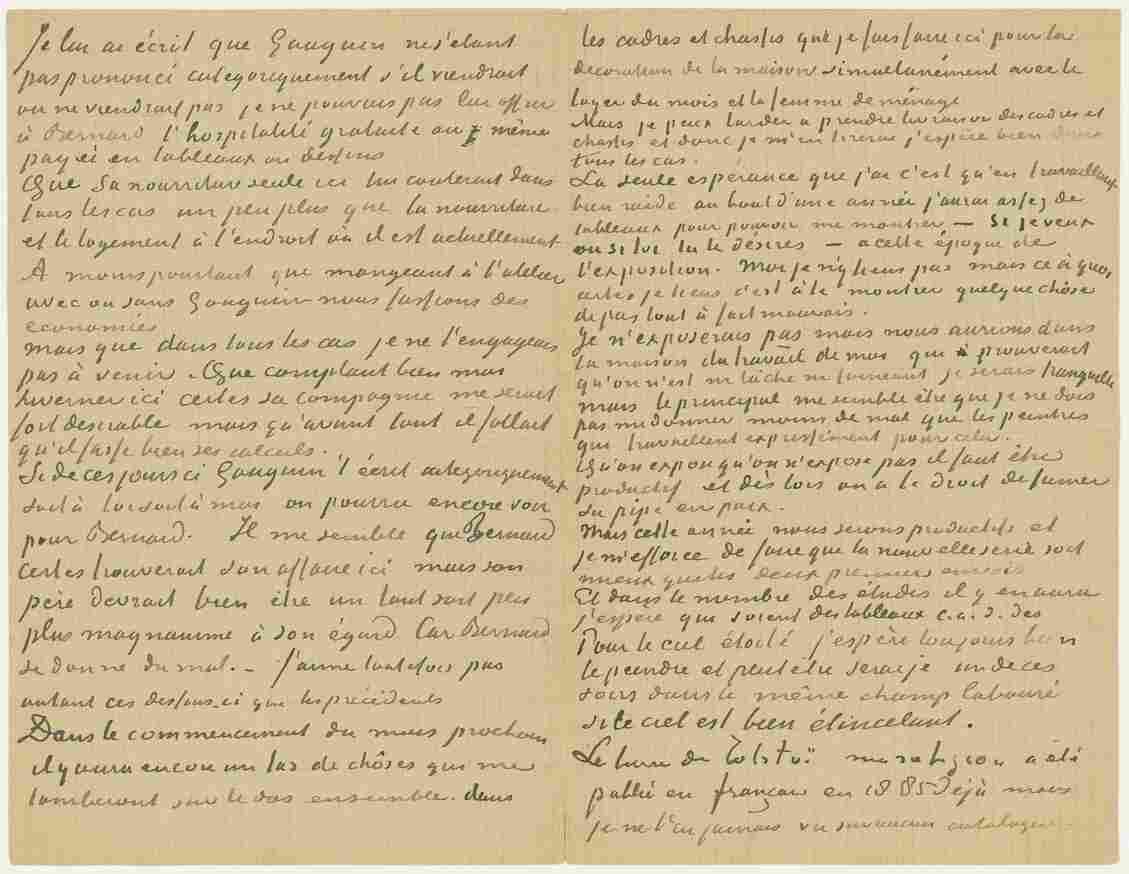 Je lui ai écrit que Gauguin ne s'étant
pas prononcé categoriquement s'il viendrait
ou ne viendrait pas je ne pouvais pas lui offrir
à Bernard l'hospitalité gratuite ou même
payée en tableaux ou dessins
Que sa nourriture seule ici lui couterait dans
tous les cas un peu plus que la nourriture
et le logement à l'endroit où il est actuellement
A moins pourtant que mangeant à l'atelier
avec ou sans Gauguin nous fassions des
economies
mais que dans tous les cas je ne l'engageais
pas à venir. Que comptant bien moi
hiverner ici certes sa compagnie me serait
fort desirable mais qu'avant tout il fallait
qu'il fasse bien ses calculs.
Si de ces jours ci Gauguin t'écrit categoriquement
soit à toi soit à moi on pourra encore voir
pour Bernard. Il me semble que Bernard
certes trouverait son affaire ici mais son
père devrait bien être un tant soit peu
plus magnanime à son égard Car Bernard
se donne du mal. – j'aime toutefois pas
autant ces dessins-ci que les précédents
Dans le commencement du mois prochain
il y aura encore un tas de chôses qui me
tomberont sur le dos ensemble. dans
les cadres et chassis que je fais faire ici pour la
decoration de la maison simultanément avec le
loyer du mois et la femme de ménage
Mais je peux tarder a prendre livraison des cadres et
chassis et donc je m'en tirerai j'espère bien dans
tous les cas.
La seule espérance que j'ai c'est qu'en travaillant
bien raide au bout d'une année j'aurai assez de
tableaux pour pouvoir me montrer – Si je veux
ou si toi tu le désires – a cette époque de
l'exposition. Moi je n'y tiens pas mais ce à quoi
certes je tiens c'est à te montrer quelque chôse
de pas tout à fait mauvais.
Je n'exposerais pas mais nous aurions dans
la maison du travail de moi qui prouverait
qu'on n'est ni lâche ni faineant je serais tranquille
mais le principal me semble être que je ne dois
pas me donner moins de mal que les peintres
qui travaillent expressément pour cela.
Qu'on expose qu'on n'expose pas il faut être
productif et dès lors on a le droit de fumer
sa pipe en paix.
Mais cette année nous serons productifs et
je m'efforce de faire que la nouvelle serie soit
mieux que les deux premiers envois
Et dans le nombre des études il y en aura
j'espère qui soient des tableaux c.a.d. des
Pour le ciel étoilé j'espère toujours bien
le peindre et peut être serai je un de ces
soirs dans le même champ labouré
si le ciel est bien étincelant.
Le livre de Tolstoï ma religion a été
publié en français en 1885 déjà mais
je ne l'ai jamais vu sur aucun catalogue.